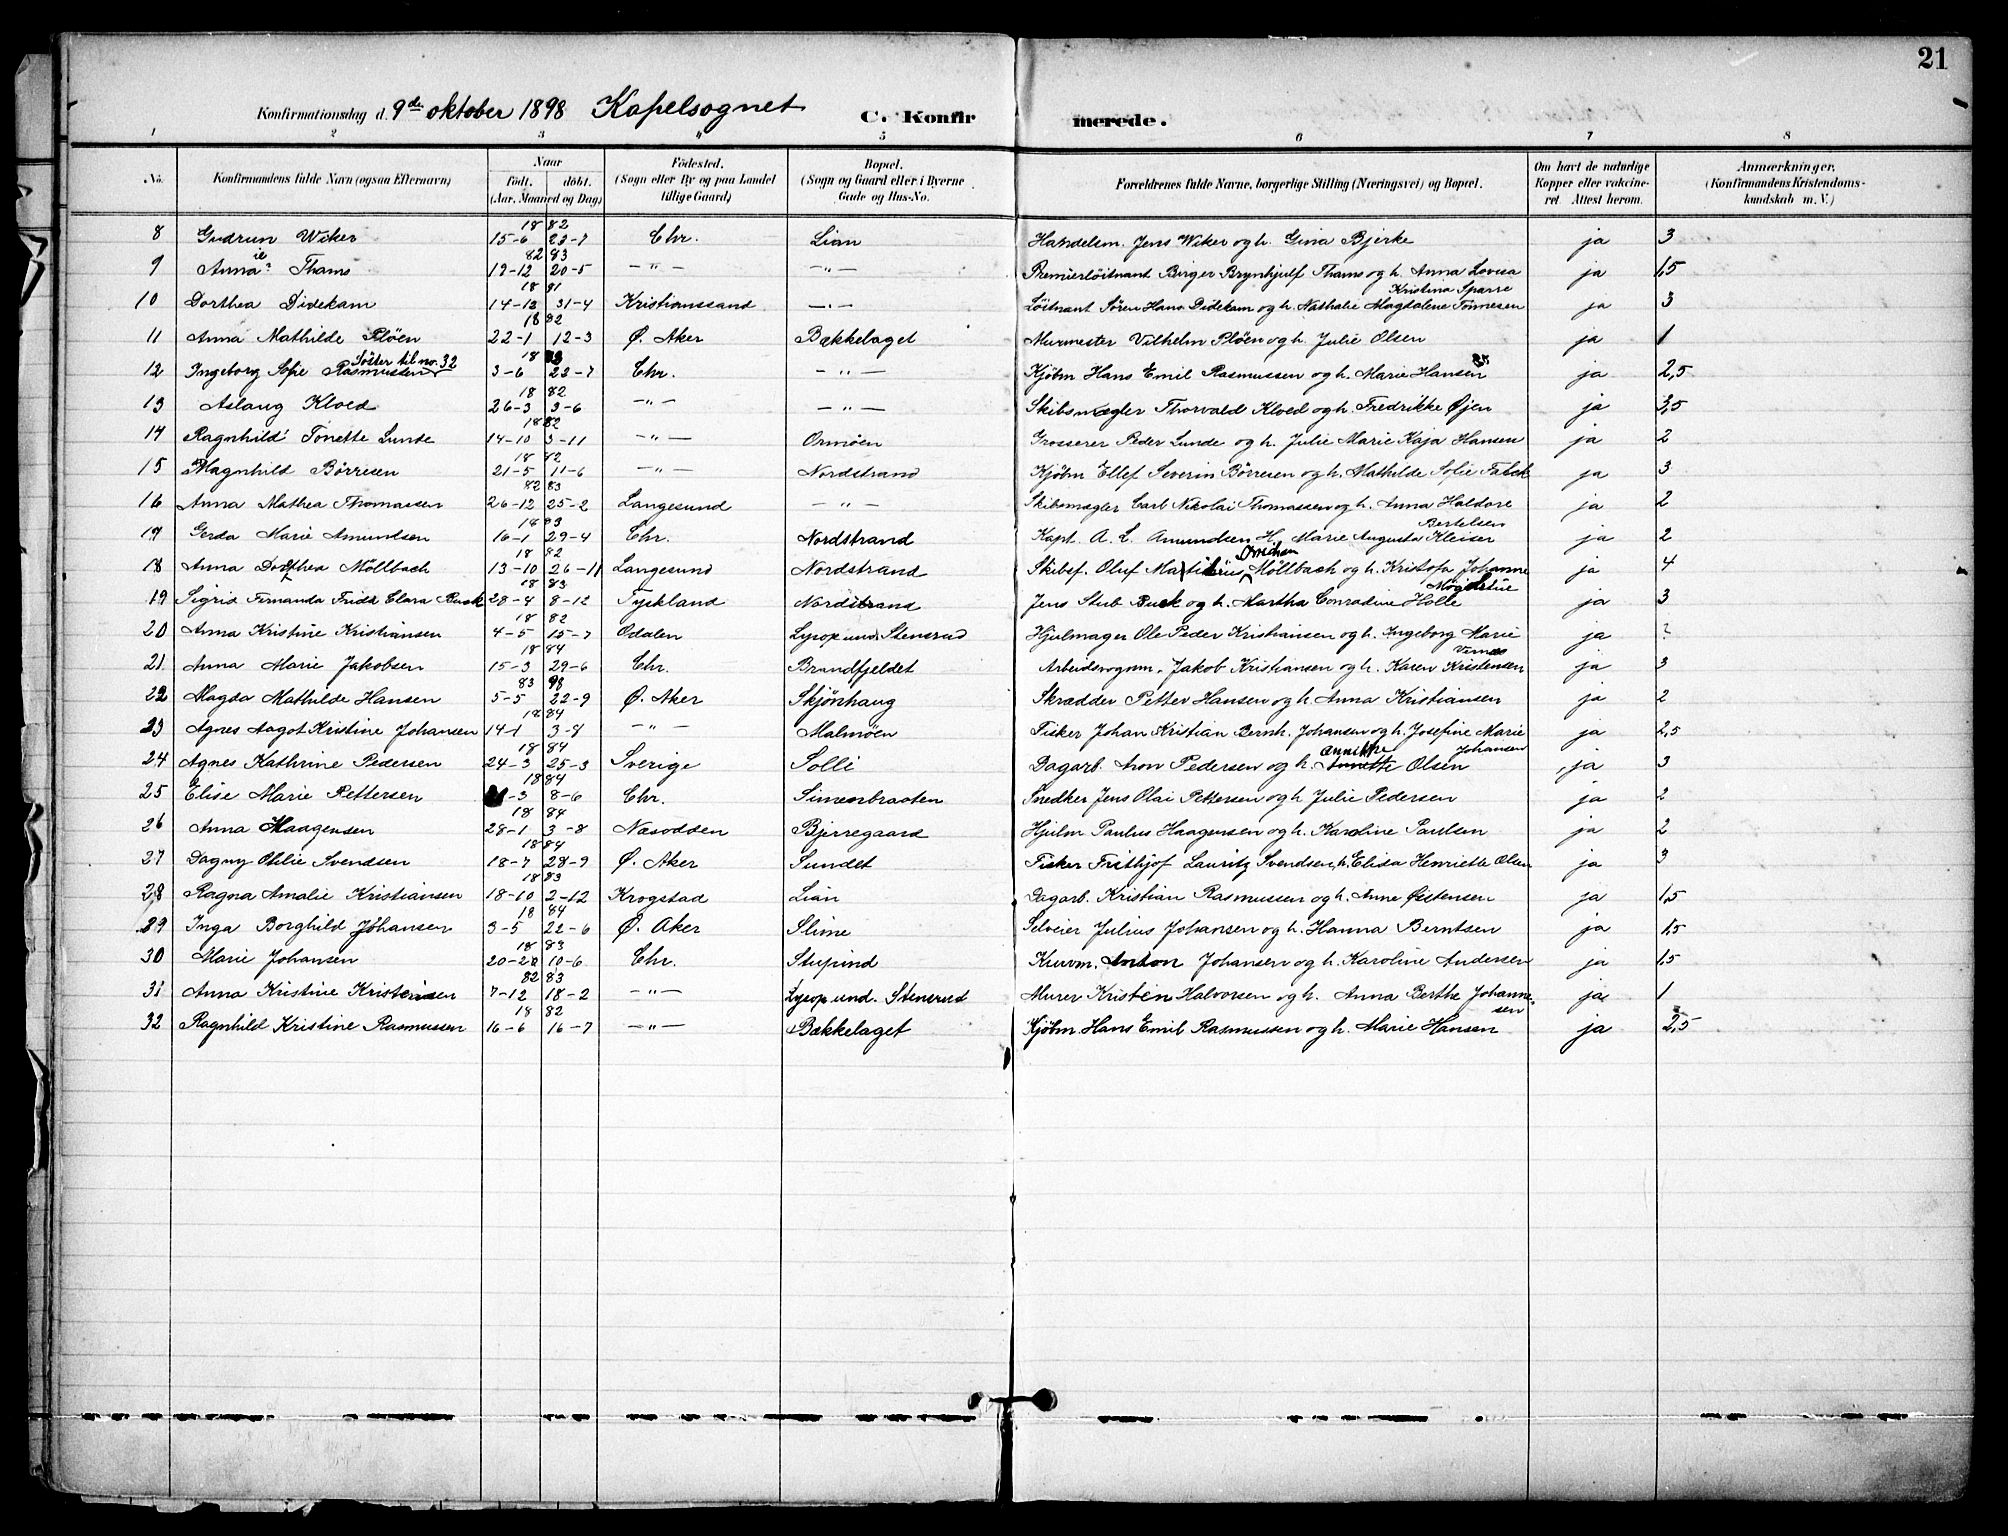 21
Konfirmationsdag d. 9de oktober 1898 Kapelsognet C. Konfirmerede.
1 2 3 4 5 6 7 8
No. Konfirmandens fulde Navn (ogsaa Efternavn) Naar Födt. döbt. (Aar, Maaned og Dag) Födested. (Sogn eller By og paa Landet tillige Gaard) Bopæl. (Sogn og Gaard eller i Byerne Gade og Hus-No. Forældrenes fulde Navne, borgerlige Stilling (Næringsvei) og Bopæl. Om havt de naturlige Kopper eller vakcineret. Attest herom. Anmærkninger. (Konfirmandens Kristendomskundskab m. V.)
18 82
8 Gudrun Wiker 15-6 23-7 Chr. Lian Handelsm. Jens Wiker og h. Gina Bjerke ja 3
82 83
9 Anna Thams 19-12 20-5 —"— —"— Premierløitnant Birger Brynhjulf Thams og h. Anna Lovisa Kristina Sparre ja 1,5
18 81
10 Dorthea Didekam 14-12 31-4 Kristianssand —"— Løitnant Sören Hans Didekam og h. Nathalie Magdalene Tönnesen ja 3
18 82
11 Anna Mathilde Plöen 22-1 12-3 Ø. Aker Bækkelaget Murmester Vilhelm Plöen og h. Julie Olsen ja 1
18
12 Ingeborg Sofie Rasmussen Söster til no. 32 3-6 23-7 Chr. —"— Kjöbm Hans Emil Rasmussen og h. Marie Hansen ja 2,5
18 82
13 Aslaug Kloed 26-3 3-6 —"— —"— Skibsmægler Thorvald Kloed og h. Fredrikke Øjen ja 3,5
18 82
14 Ragnhild Tonette Lunde 14-10 3-11 —"— Ormöen Grosserer Peder Lunde og h. Julie Marie Kaja Hansen ja 2
18 82
15 Magnhild Börresen 21-5 11-6 —"— Nordstrand Kjöbm Ellef Severin Börresen og h. Mathilde Sofie Falck ja 3
82 83
16 Anna Mathea Thomassen 26-12 25-2 Langesund —"— Skibsmægler Carl Nikolai Thomassen og h. Anna Haldore Bertelsen ja 2
18 83
17 Gerda Marie Amundsen 16-1 29-4 Chr. Nordstrand Kapt. A. L. Amundsen H. Marie Augusta Kleiser ja 2
18 82
18 Anna Dorthea Möllbach 13-10 26-11 Langesund Nordstrand Skibsf. Oluf Möllbach og h. Kristofa Johanne ja 4
18 83
19 Sigrid Fernanda Frida Clara Busk 28-4 8-12 Tyskland Nordstrand Jens Stub Busk og h. Martha Conradine Holle ja 3
18 82
20 Anna Kristine Kristiansen 4-5 15-7 Odalen Lysop und. Stensrud Hjulmager Ole Peder Kristiansen og h. Ingeborg Marie ja 2
18 84
21 Anna Marie Jakobsen 15-3 29-6 Chr. Brandfjeldet Arbeidsvogm. Jakob Kristiansen og h. Karen Kristensen ja 3
83
22 Magda Mathilde Hansen 5-5 22-9 Ø. Aker Skjönhaug Skrædder Petter Hansen og h. Anna Kristiansen ja 2
18 84
23 Agnes Aagot Kristine Johansen 14-1 3-8 —"— Malmöen Fisker Johan Kristian Bernh. Johansen og h. Josefine Marie Johansen ja 2,5
18 84
24 Agnes Kathrine Pedersen 24-3 25-3 Sverige Solli Dagarb. Aron Pedersen og h. Annikke Olsen ja 3
18 84
25 Elise Marie Pettersen -3 8-6 Chr. Simensbraaten Snedker Jens Olai Pettersen og h Julie Pedersen ja 2
18 84
26 Anna Haagensen 28-1 3-8 Næsodden Bjerregaard Hjulm Paulus Haagensen og h. Karoline Paulsen ja 2
18 84
27 Dagny Othlie Svendsen 18-7 28-9 Ø. Aker Sundet Fisker Frithjof Lauritz Svendsen, h. Elisa Henriette Olsen ja 3
18 83
28 Ragna Amalie Kristiansen 18-10 2-12 Krogstad Lian Dagarb. Kristian Rasmussen og h. Anne Østensen ja 1,5
18 84
29 Inga Borghild Johansen 3-5 22-6 Ø. Aker Slime Selveier Julius Johansen og h. Hanna Berntsen ja 1,5
18 83
30 Marie Johansen 20-2 10-6 Chr. Stupind Kurvm. Anton Johansen og h. Karoline Andersen ja 1,5
82 83
31 Anna Kristine Kristensen 7-12 18-2 —"— Lysop und. Stensrud Murer Kristen Halvorsen og h. Anna Berthe Johannesen ja 1
18 82
32 Ragnhild Kristine Rasmussen 16-6 16-7 —"— Bækkelaget Kjöbm. Hans Emil Rasmussen og h. Marie Hansen ja 2,5